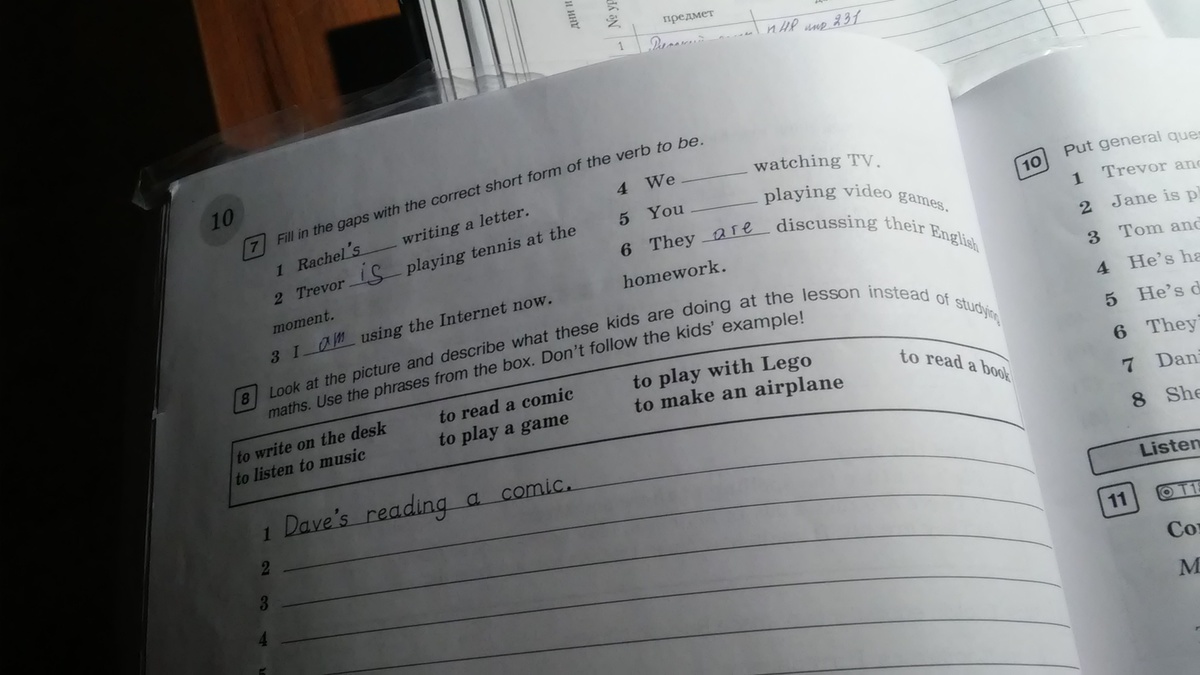 дни н
№ ур
предмет
1
п 48 стр 231
10
7 Fill in the gaps with the correct short form of the verb to be.
1 Rachel's____ writing a letter.
2 Trevor is playing tennis at the
moment.
3 I am using the Internet now.
4 We ______ watching TV.
5 You ______ playing video games.
6 They are discussing their English
homework.
8 Look at the picture and describe what these kids are doing at the lesson instead of studying
maths. Use the phrases from the box. Don't follow the kids' example!
to write on the desk to read a comic to play with Lego to read a book
to listen to music to play a game to make an airplane
1 Dave's reading a comic.
2
3
4
5
10 Put general que
1 Trevor and
2 Jane is p
3 Tom and
4 He's ha
5 He's d
6 They'
7 Dan
8 She
Listen
11 T1
Co
M